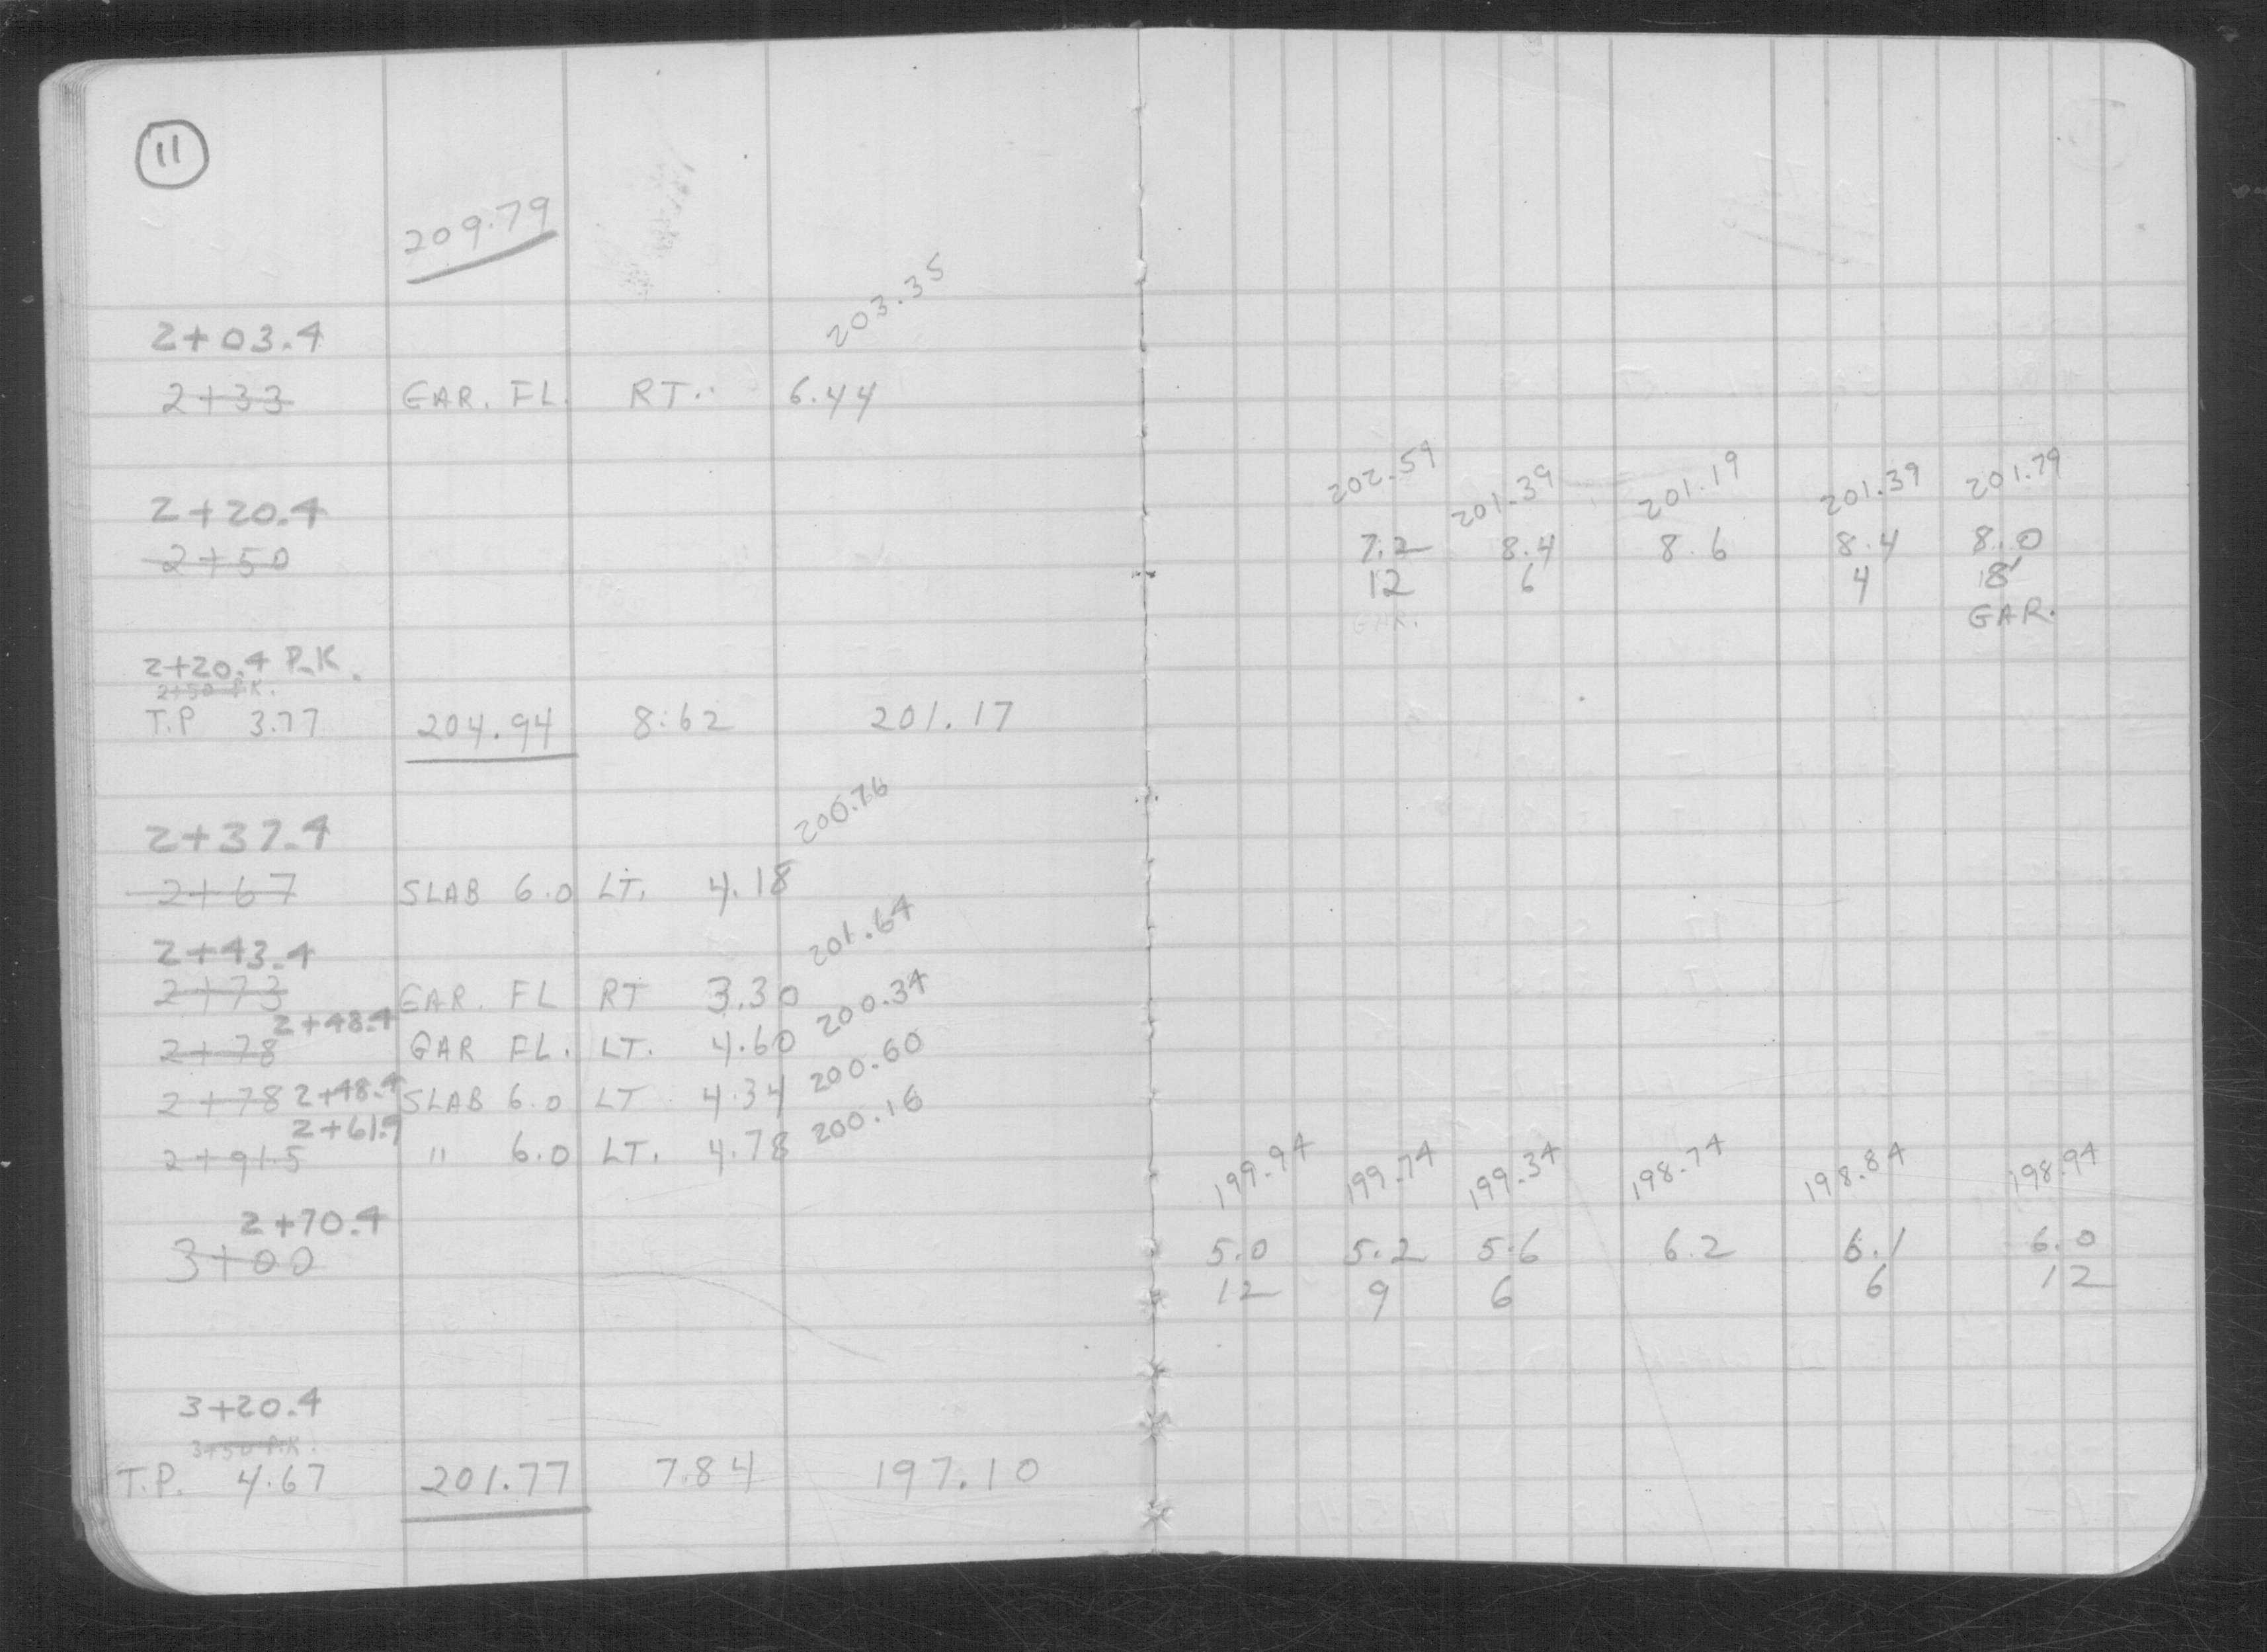 11
209.79
203.35
2+03.4
2+33 GAR. FL. RT. 6.44
202.59 201.39 201.19 201.39 201.79
2+20.4
7.2 8.4 8.6 8.4 8.0
2+50
12 6 4 18'
GAR. GAR.
2+20.4 P.K.
2+50 P.K.
T.P 3.77 204.94 8.62 201.17
200.76
2+37.4
2+67 SLAB 6.0 LT. 4.18
201.64
2+43.4
2+73 GAR. FL RT 3.30
2+48.4 200.34
2+78 GAR FL. LT. 4.60
200.60
2+78 2+48.4 SLAB 6.0 LT 4.34
2+61.9 200.16
2+91.5 " 6.0 LT. 4.78
199.94 199.74 199.34 198.74 198.84 198.94
2+70.4
3+00 5.0 5.2 5.6 6.2 6.1 6.0
12 9 6 6 12
3+20.4
3+50 P.K.
T.P. 4.67 201.77 7.84 197.10